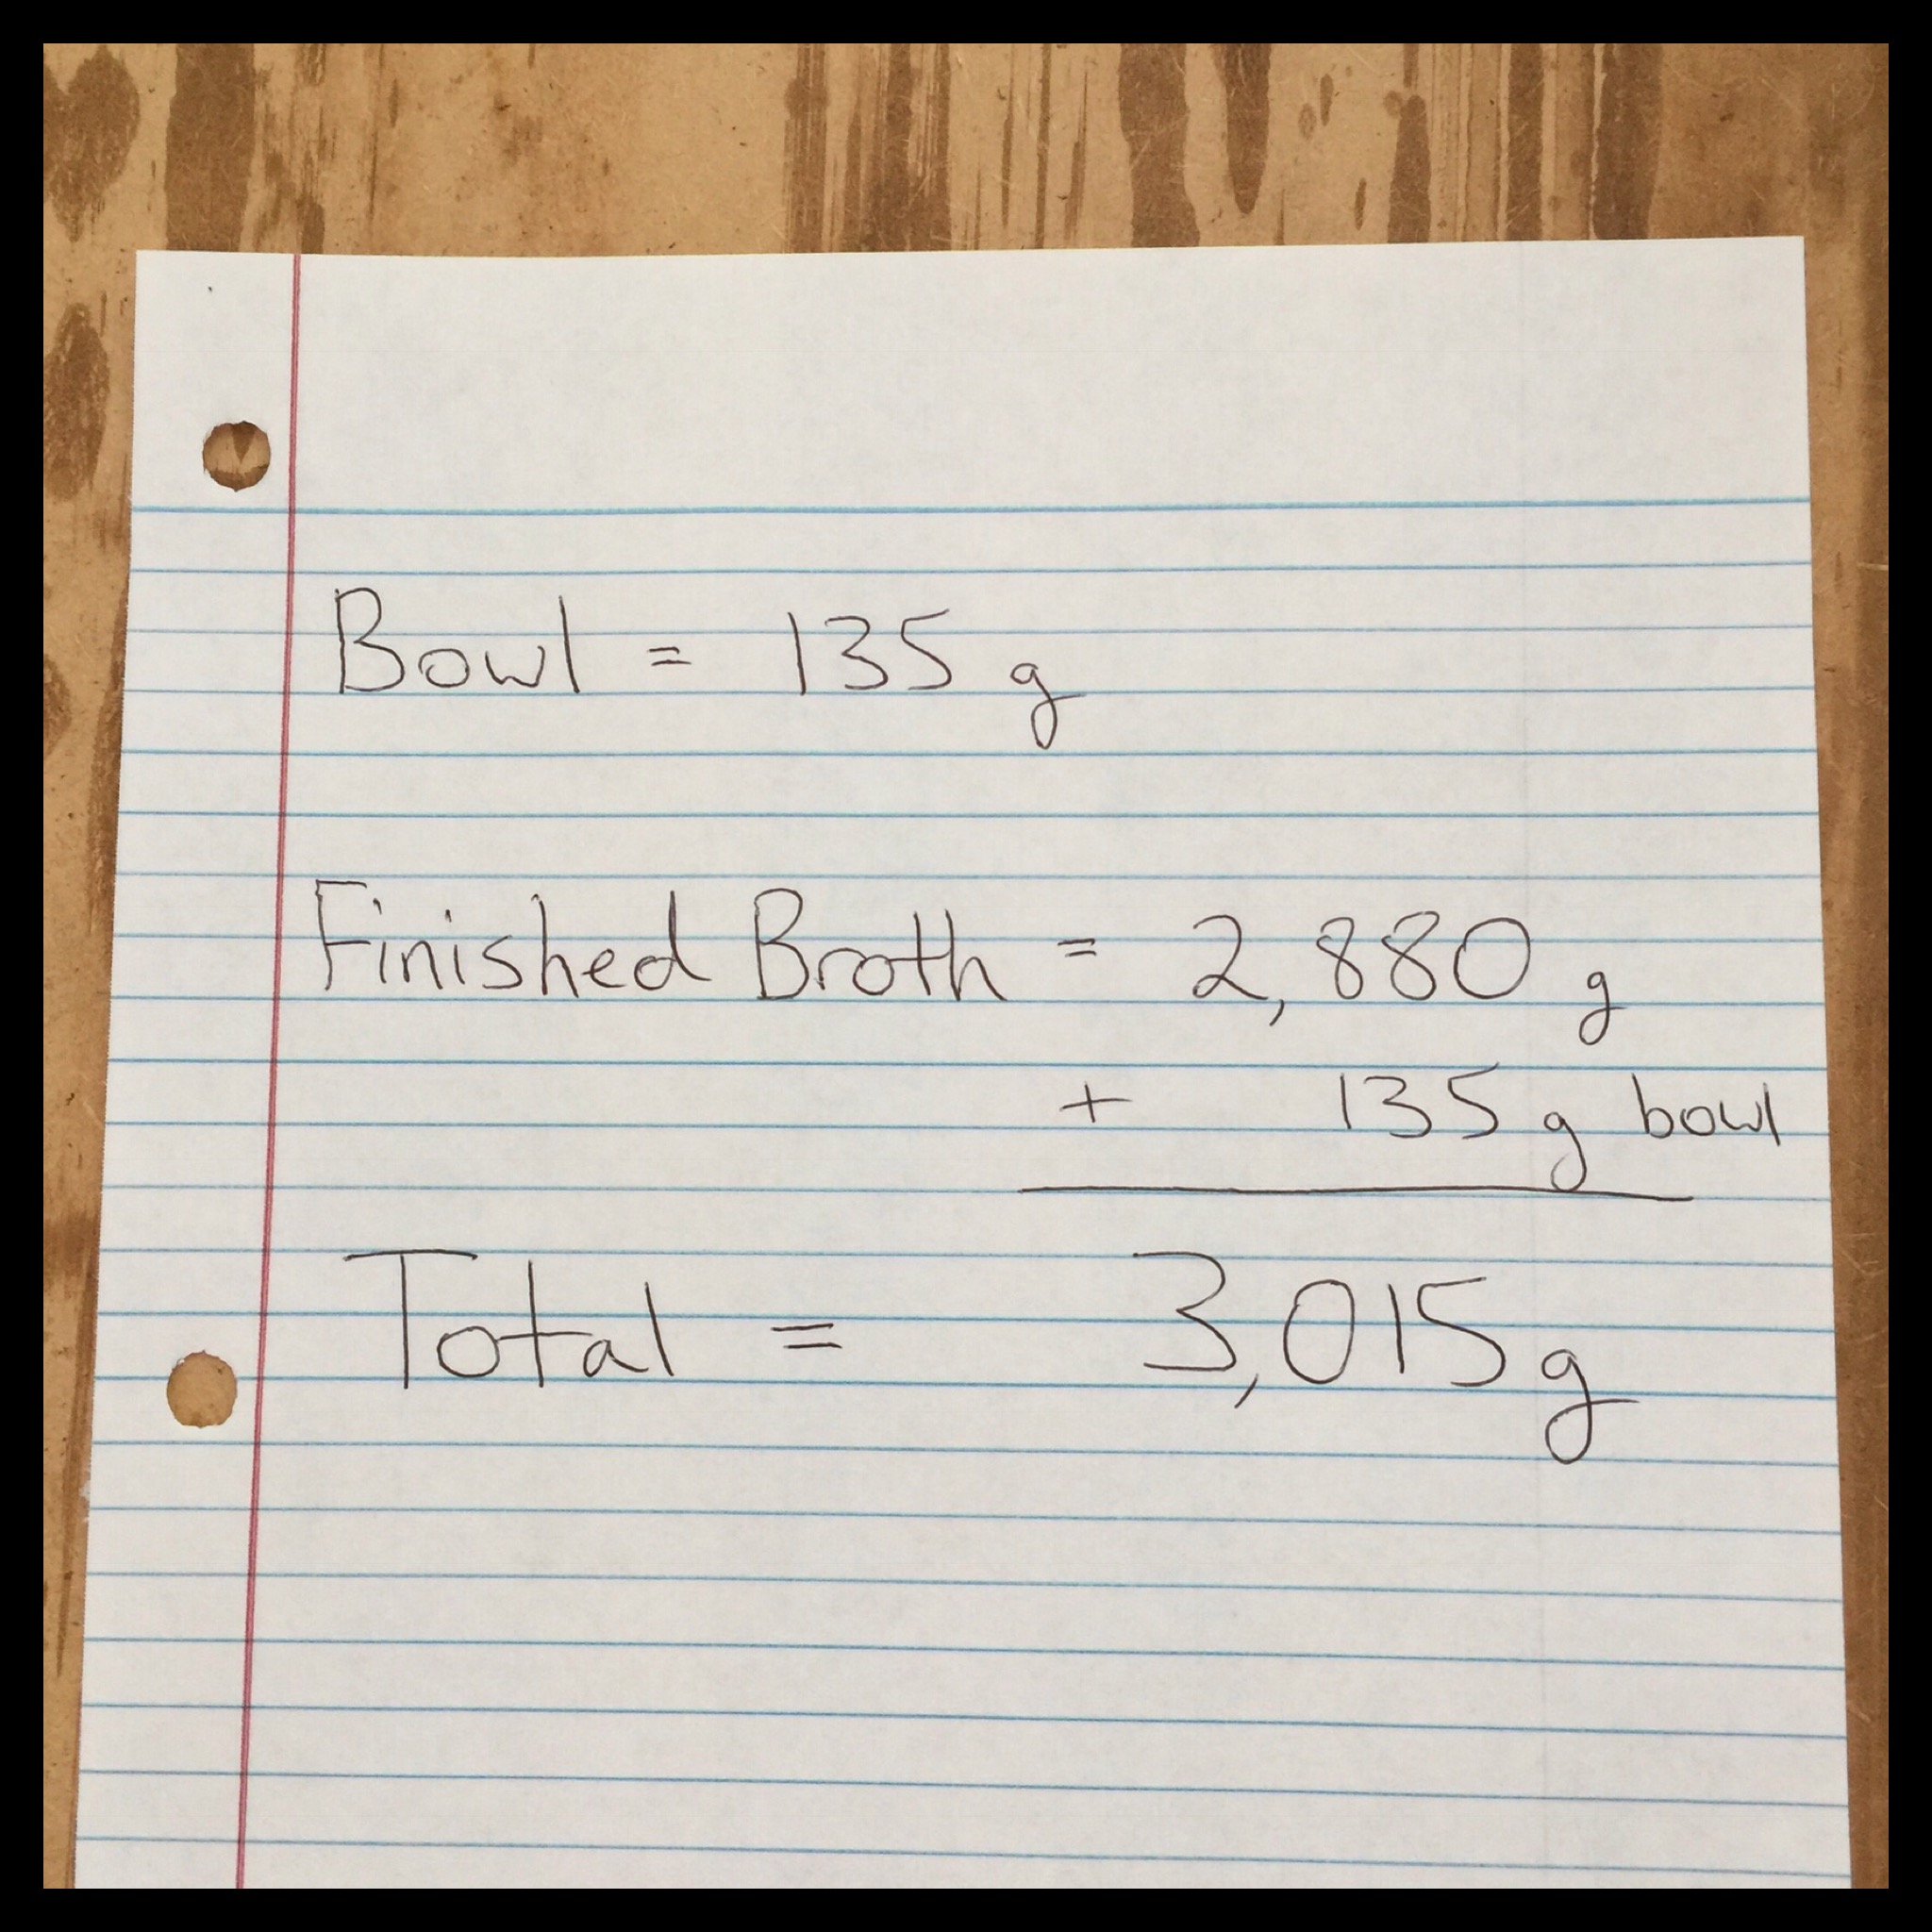 Bowl = 135 g
Finished Broth = 2,880 g
+ 135 g bowl
Total = 3,015 g